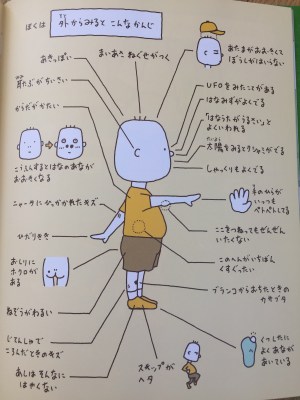 ぼくは
外からみると こんなかんじ
そと
あきっぽい
まいあさ ねぐせがつく
あたまがおおきくて
ぼうしがはいらない
耳たぶがちいさい
みみ
UFOをみたことがある
はなみずがよくでる
からだがかたい
「はなうたがうるさい」と
よくいわれる
たいよう
太陽をみるとクシャミがでる
こうふんするとはなのあなが
おおきくなる
しゃっくりもよくでる
てのひらが
いっつも
ベトベトしてる
ニャーゴにひっかかれたキズ
ここをつねってもぜんぜん
いたくない
ひだりきき
このへんがいちばん
くすぐったい
おしりに
ホクロが
ある
ブランコからおちたときの
カサブタ
ねぞうがわるい
じてんしゃで
ころんだときのキズ
くつしたに
よくあなが
あいている
あしは そんなに
はやくない
スキップが
ヘタ